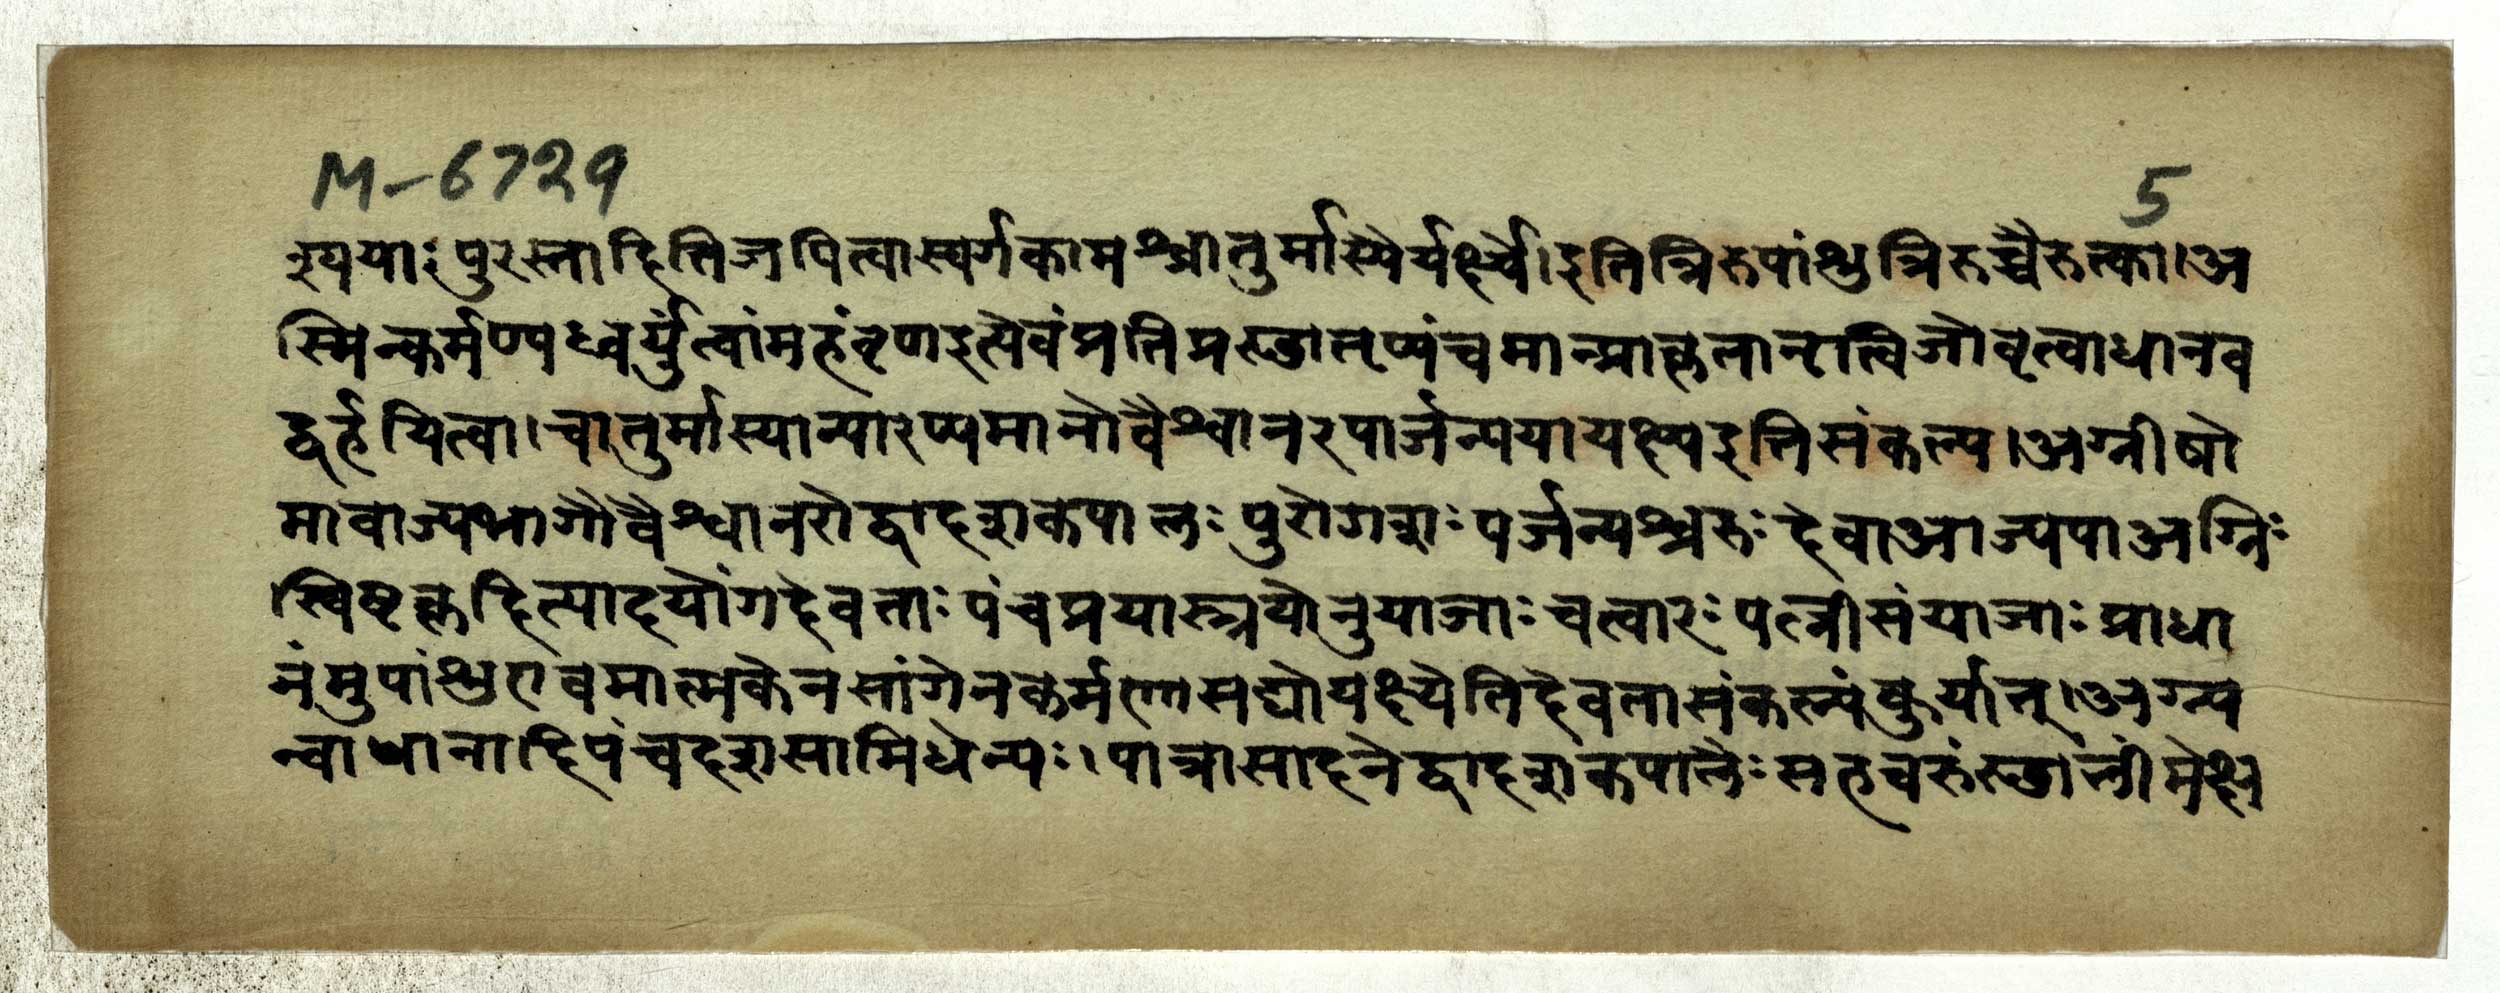 M-6729
5
ख्ययाः पुरस्तादितिजपित्वास्वर्गकामश्चातुर्मास्यैर्यक्ष्ये।इतित्रिरुपांशुत्रिरुच्चैरुत्का।अ
स्मिन्कर्मण्यध्वर्युंत्वांमहंवृणइत्येवंप्रतिप्रस्थातृप्पंचमान्प्राकृतानृत्विजोवृत्वाधानव
द्वर्हयित्वा।चातुर्मास्यान्यारप्यमानोवैश्वानरपार्जन्ययायक्ष्यइतिसंकल्प।अग्नीषो
मावाज्यभागौवैश्वानरोद्वादशकपालः पुरोगशः पर्जन्यश्चरुः देवाआज्यपाअग्निः
स्विष्टकृदित्यादयोंगदेवताः पंचप्रयास्त्रयोनुयाजाः चत्वारः पत्नीसंयाजाः प्राधा
नंमुपांशुएवमात्मकेनसांगेनकर्मणासद्योयक्ष्येतिदेवतासंकल्पंकुर्यात्।अग्न्य
न्वाधानादिपंचदशसामिधेन्यः।पात्रासादनेद्वादशकपालैः सहचरुंस्थालीमेक्ष